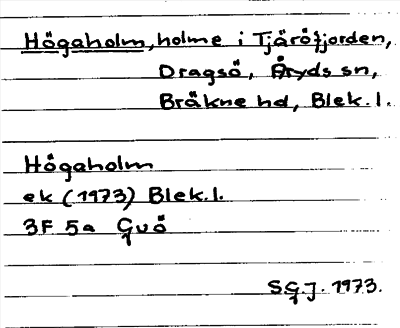 Högaholm, holme i Tjäröfjorden,
Dragsö, Åryds sn,
Bräkne hd, Blek. l.
Högaholm
ek (1973) Blek. l.
3F 5a Guö
SGJ. 1973.